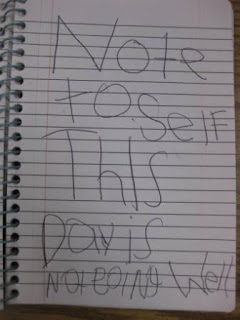 Note
to Self
This
Day is
Not GOING Well